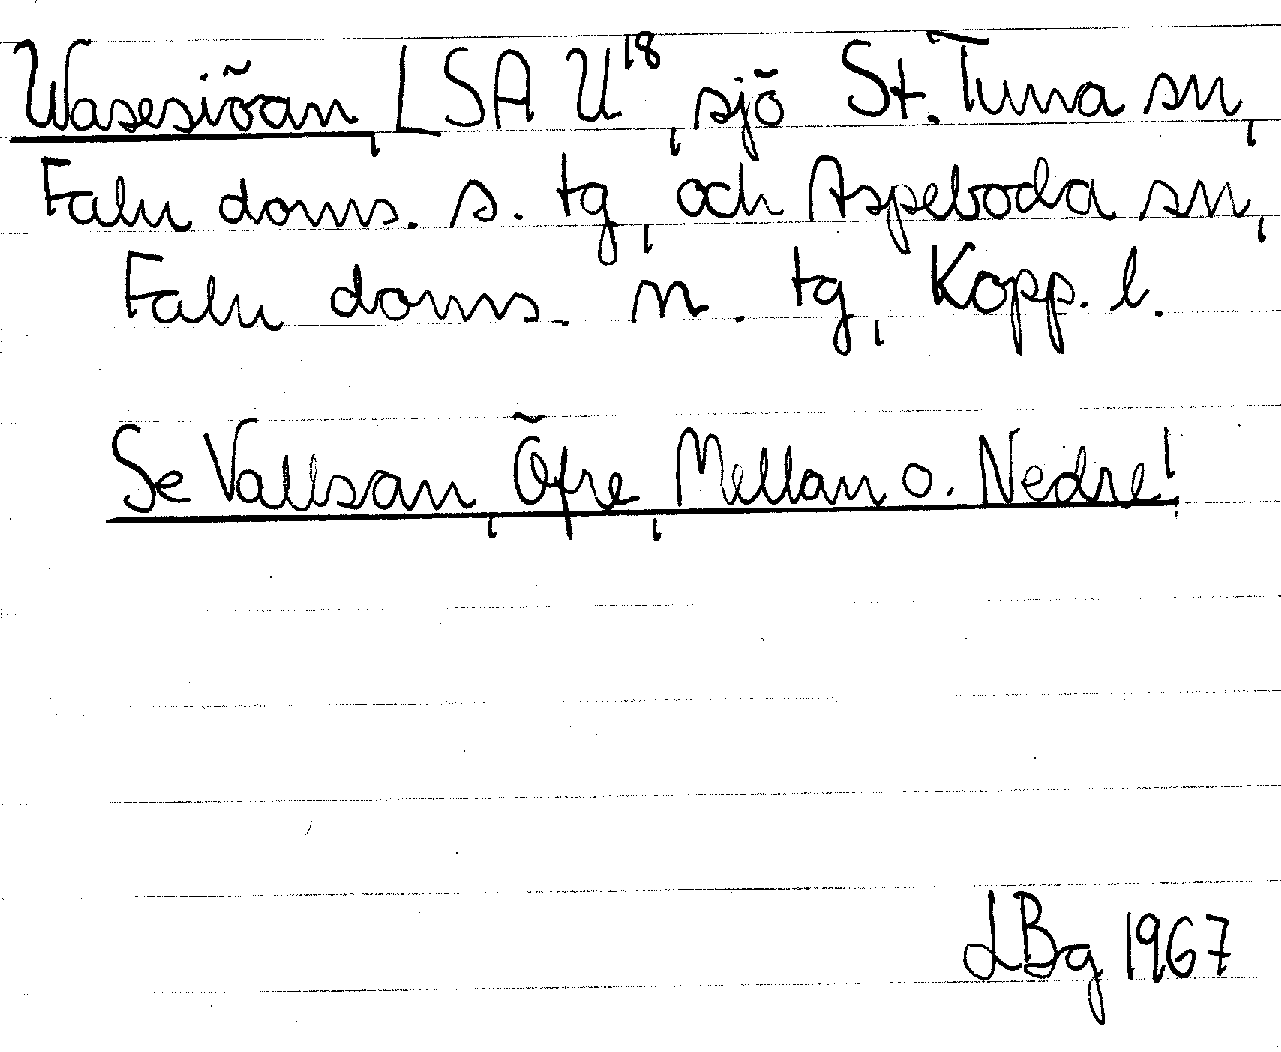 Wasesiöan, LSA U¹⁸, sjö St. Tuna sn,
Falu doms. s. tg, och Aspeboda sn,
Falu doms. n. tg, Kopp. l.
Se Vallsan, Öfre, Mellan o. Nedre!
LBg 1967